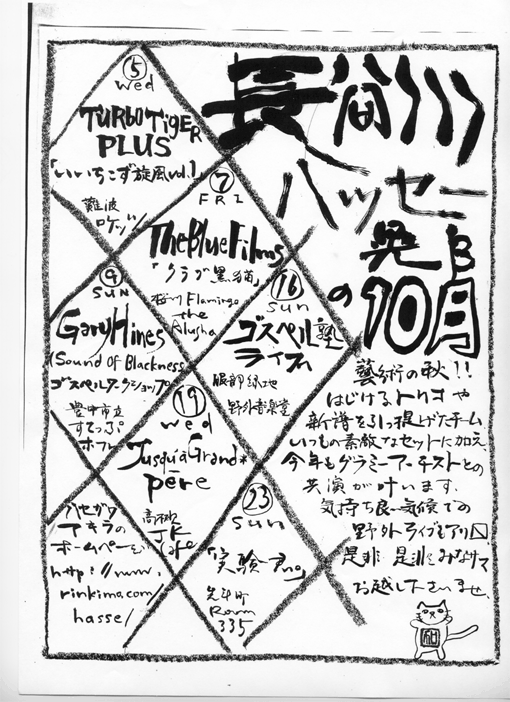 長谷川
ハッセー
の
10月
⑤
wed
TURBO TiGER
PLUS
「いいちこず旋風vol.1」
難波
ロケッツ
⑦
FRI
The Blue Films
「クラブ黒猫」
桜川 Flamingo
the
Alusha
⑨
SUN
Gary Hines
(Sound Of Blackness
ゴスペルワークショップ
豊中市立
すてっぷ
ホール
⑯
Sun
ゴスペル塾
ライブ
服部緑地
野外音楽堂
⑲
wed
Jusqu'a Grand*
père
高槻
JK
Cafe
23
Sun
Room
335
ハセガワ
アキラの
ホームページ
http://www.
rinkima.com/
hasse/
藝術の秋!!
はじけるトリコや
新譜を引っ提げたチーム
いつもの素敵なセットに加え、
今年もグラミーアーチストとの
共演が叶います。
気持ち良い気候での
野外ライブもアリ
是非 是非 みなサマ
お越し下さいませ。